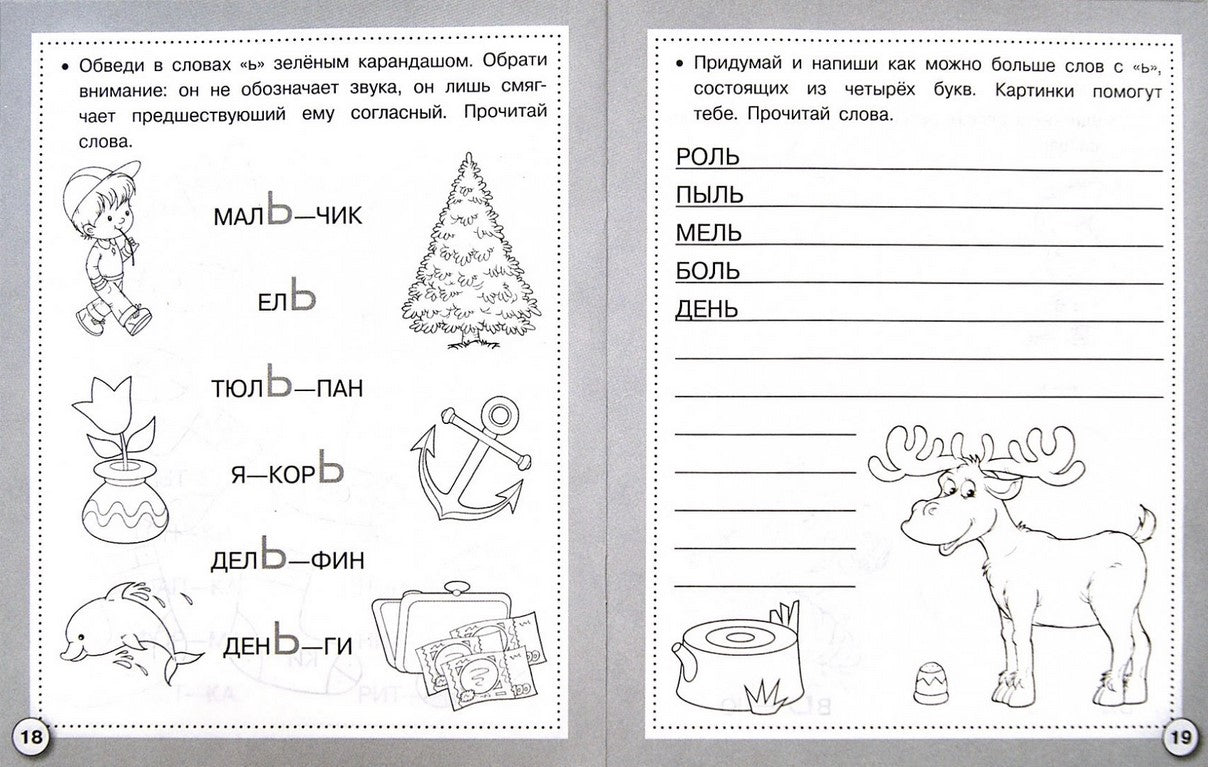 • Обведи в словах «ь» зелёным карандашом. Обрати
внимание: он не обозначает звука, он лишь смяг-
чает предшествуюший ему согласный. Прочитай
слова.
МАЛЬ—ЧИК
ЕЛЬ
ТЮЛЬ—ПАН
Я—КОРЬ
ДЕЛЬ—ФИН
ДЕНЬ—ГИ
100
100
18
• Придумай и напиши как можно больше слов с «ь»,
состоящих из четырёх букв. Картинки помогут
тебе. Прочитай слова.
РОЛЬ
ПЫЛЬ
МЕЛЬ
БОЛЬ
ДЕНЬ
19